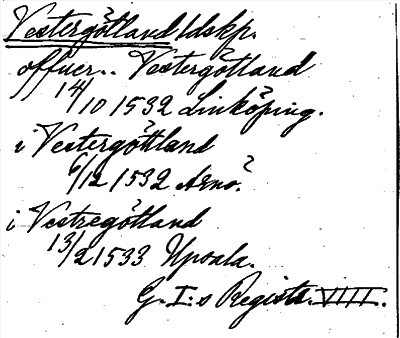 Vestergötland ldskp.
offuer.. Vestergötland
14/10 1532 Linköping.
i Vestergöttland
6/12 1532 Arnö.
i Vestregötland
13/2 1533 Upsala.
G. I:s Registr. VIII.